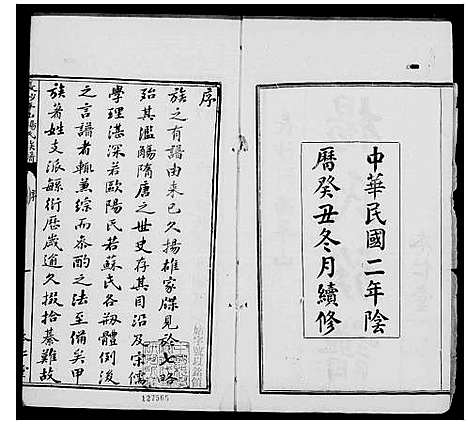 中華民國二年陰
曆癸丑冬月續修
序
族之有譜由来已久揚雄家牒見於七略
治其濫觴隋唐之世史存其目沿及宋儒
學理湛深若歐陽氏若蘇氏各剏體例後
之言譜者輒兼綜而叅酌之法至備矣甲
族著姓支派緐衍歷歲逾久掇拾綦難故
127565